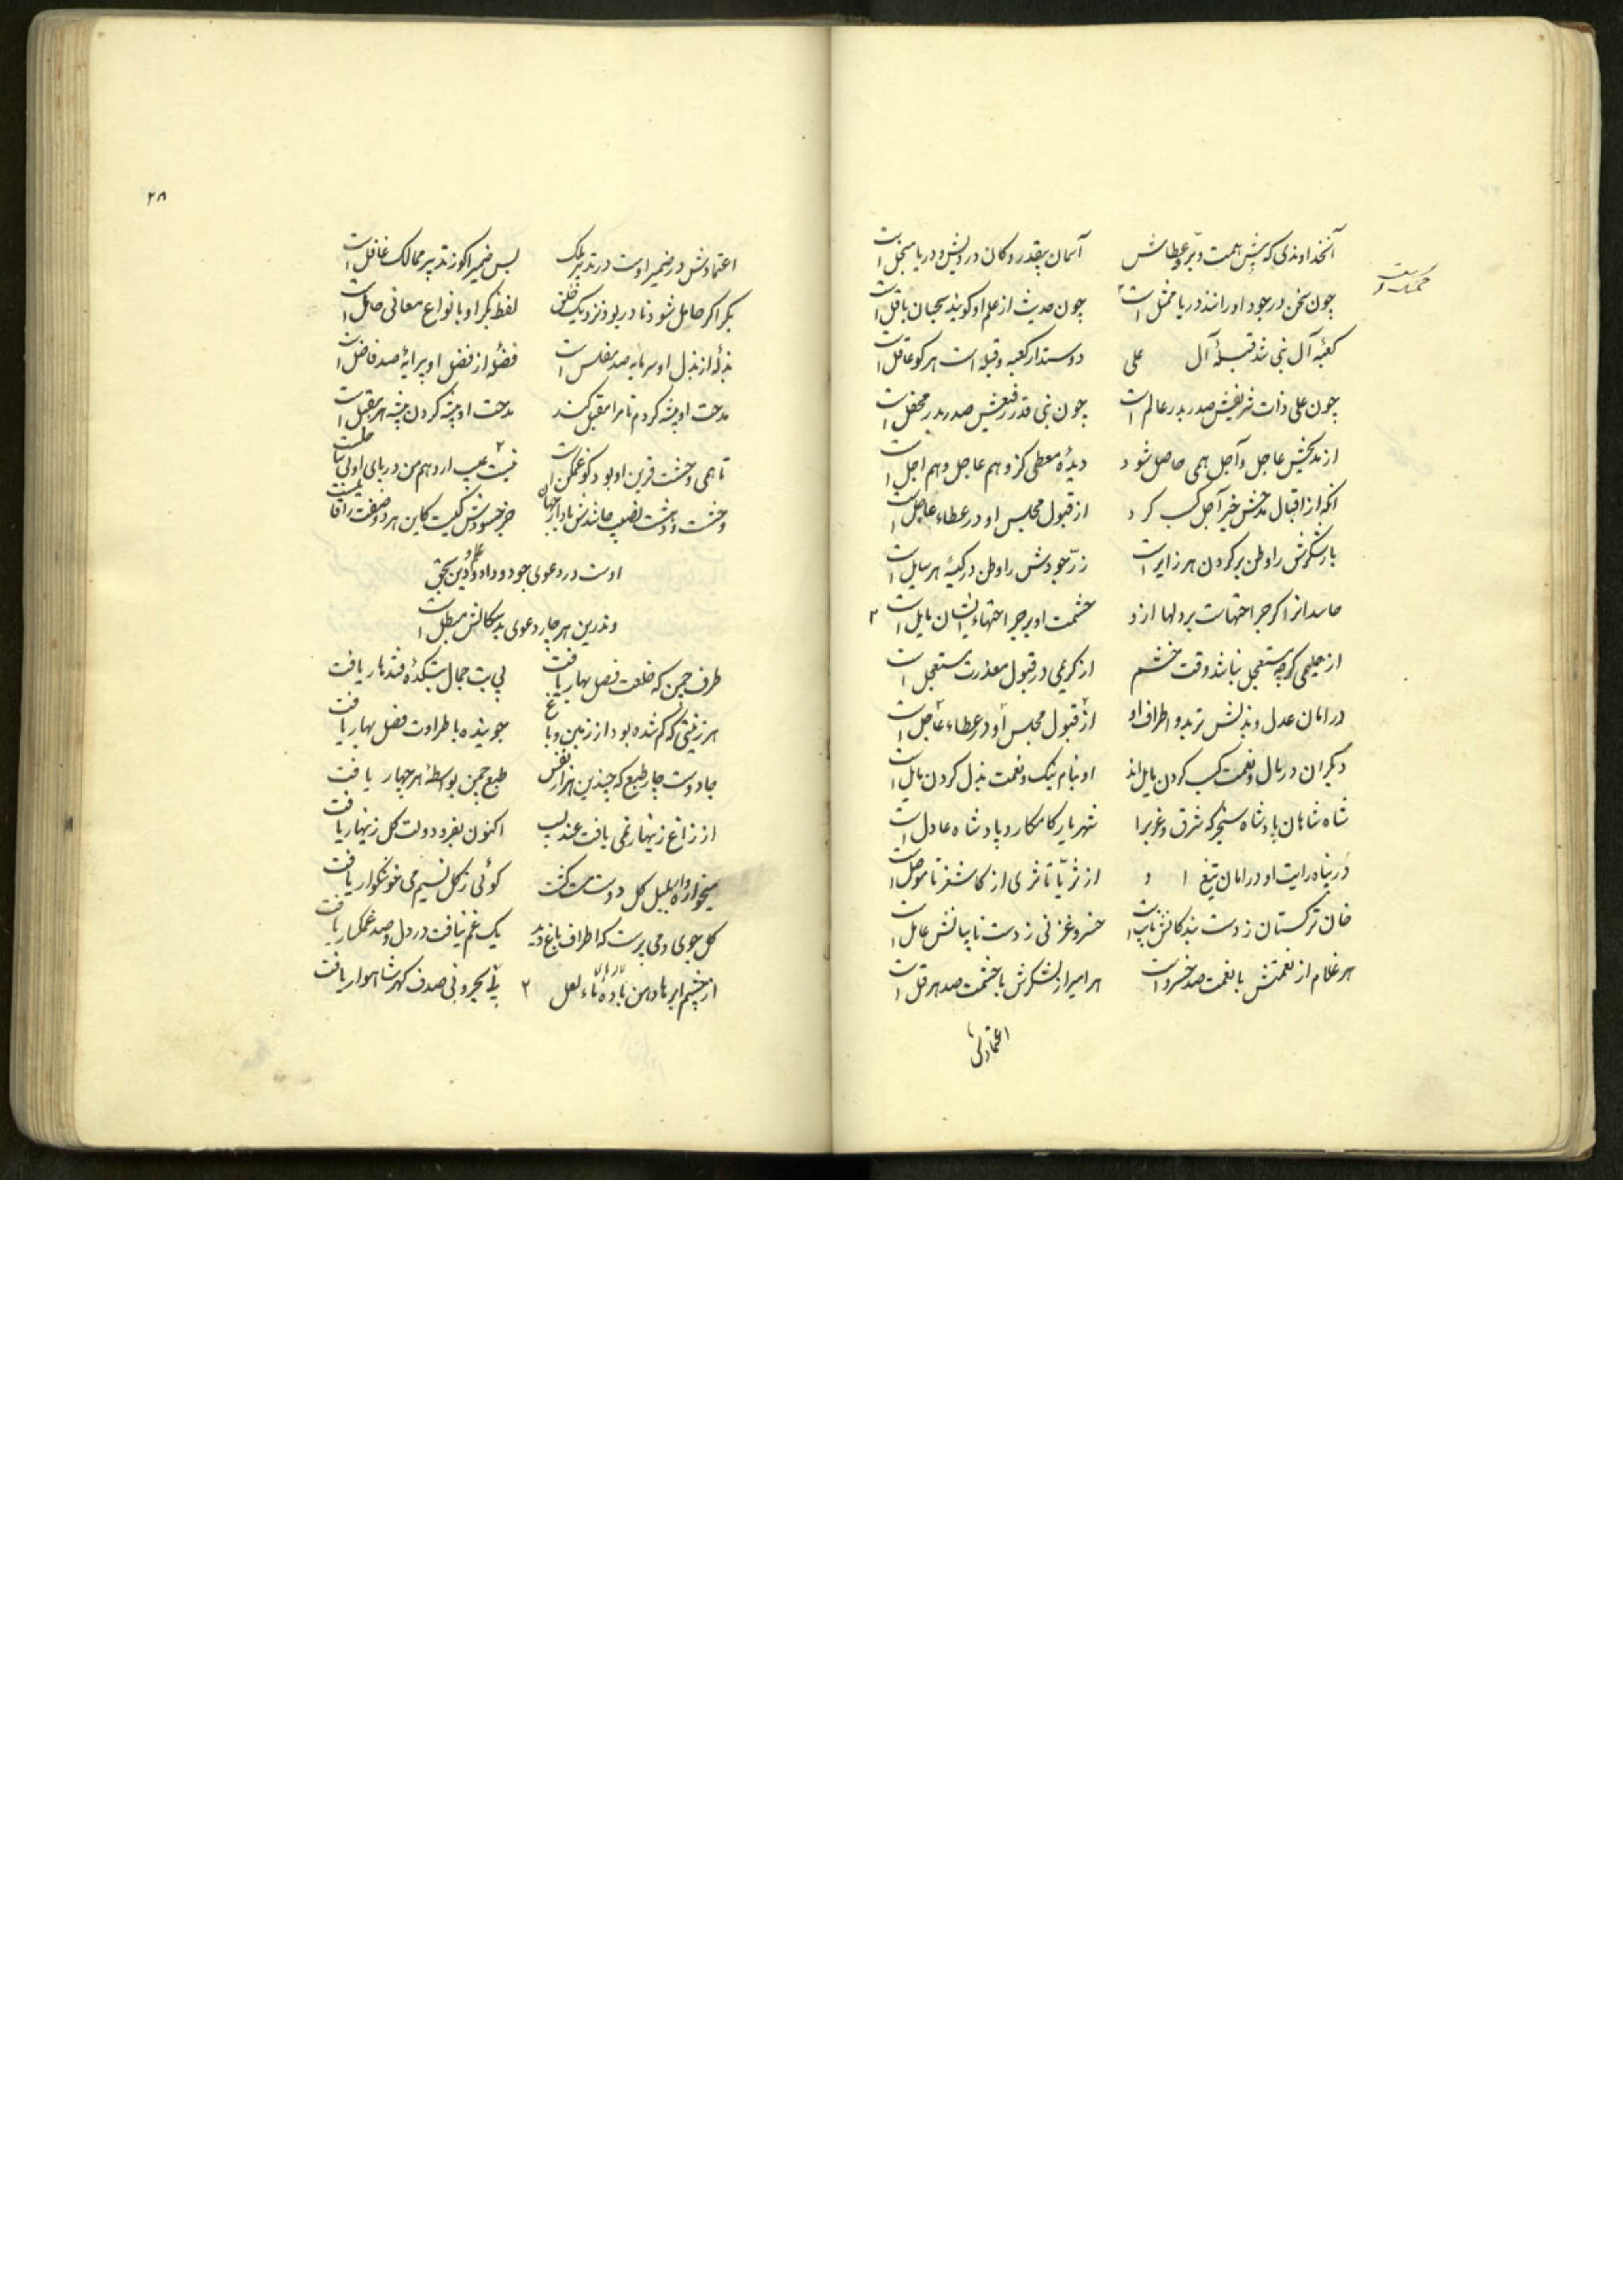 آنخداوندی که پیش همت و بر و عطاش آسمان بیقدر و کان درویش و دریا مبخل است
چون سخن در جود او رانند دریا ممثل است چون حدیث از علم او کویند سحبان باقل است
کعبه آل نبی شد قبله آل علی دوستدار کعبه و قبله است هر کو عاقل است
چون علی ذات شریفش صدر بدر عالم است چون نبی قدر رفیعش صدر بدر محفل است
از مدیحش عاجل و آجل همی حاصل شود دیده معطی کزو هم عاجل و هم آجل است
آنکه از اقبال مدحش خیر آجل کسب کرد از قبول مجلس او در عطاء عاجل است
بار شکرش را وطن بر کردن هر زایر است زر جودش را وطن در کیسه هر سایل است
حاسدانرا اکر جراحتهاست بر دلها ازو حشمت او بر جراحتهاء ایشان بایل است
از حلیمی کرچه مستعجل نباشد وقت خشم از کریمی در قبول معذرت مستعجل است
در امان عدل و بذلش تر بدو اطراف او از قبول مجلس او در عطاء عاجل است
دیکران در مال و نعمت کسب کردن مایل اند او بنام نیک و نعمت بذل کردن مایل است
شاه شاهان پادشاه سنجر که شرق و غرب را شهریار کامکار و پادشاه عادل است
در پناه رایت او در امان تیغ او از ثریا تا ثری از کاشغر تا موصل است
خان ترکستان ز دست بندکانش نایب است خسرو غزنی ز دست نایبانش عامل است
هر غلام از نعمتش با نعمت صد خسرو است هر امیر از لشکرش با حشمت صد هرقل است
اعتمادش
۲۸
اعتمادش در ضمیر اوست در تدبیر ملک بس ضمیرا کو ز تدبیر ممالک غافل است
بکر اکر حامل شود نادر بود نزدیک خلق لفظ بکر او بانواع معانی حامل است
بذله از بذل او سرمایه صد مفلس است فضله از فضل او پیرایه صد فاضل است
مدحت او پیشه کردم تا مرا مقبل کند مدحت او پیشه کردن پیشه هر مقبل است
اوست در دعوی جود و داد و علم و دین محق
وندرین هر چار دعوی بدسکالش مبطل است
طرف چمن که خلعت فصل بهار یافت بی بت جمال بتکده قندهار یافت
هر زینتی که کم شده بود از زمین و باغ جوینده با طراوت فصل بهار یافت
جادوست چار طبع که چندین هزار نقش طبع چمن بواسطه هر چهار یافت
از زاغ زینهار نمی یافت عندلیب اکنون بفر دولت کل زینهار یافت
میخواره وار بلبل کل دوست مست کشت کوئی ز کل نسیم می خوشکوار یافت
کل جوی و می پرست که اطراف باغ دید یک غم نیافت در دل و صد غمکسار یافت